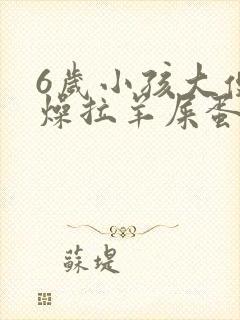 6歲小孩大
燥拉羊屎蛋
蘇堤